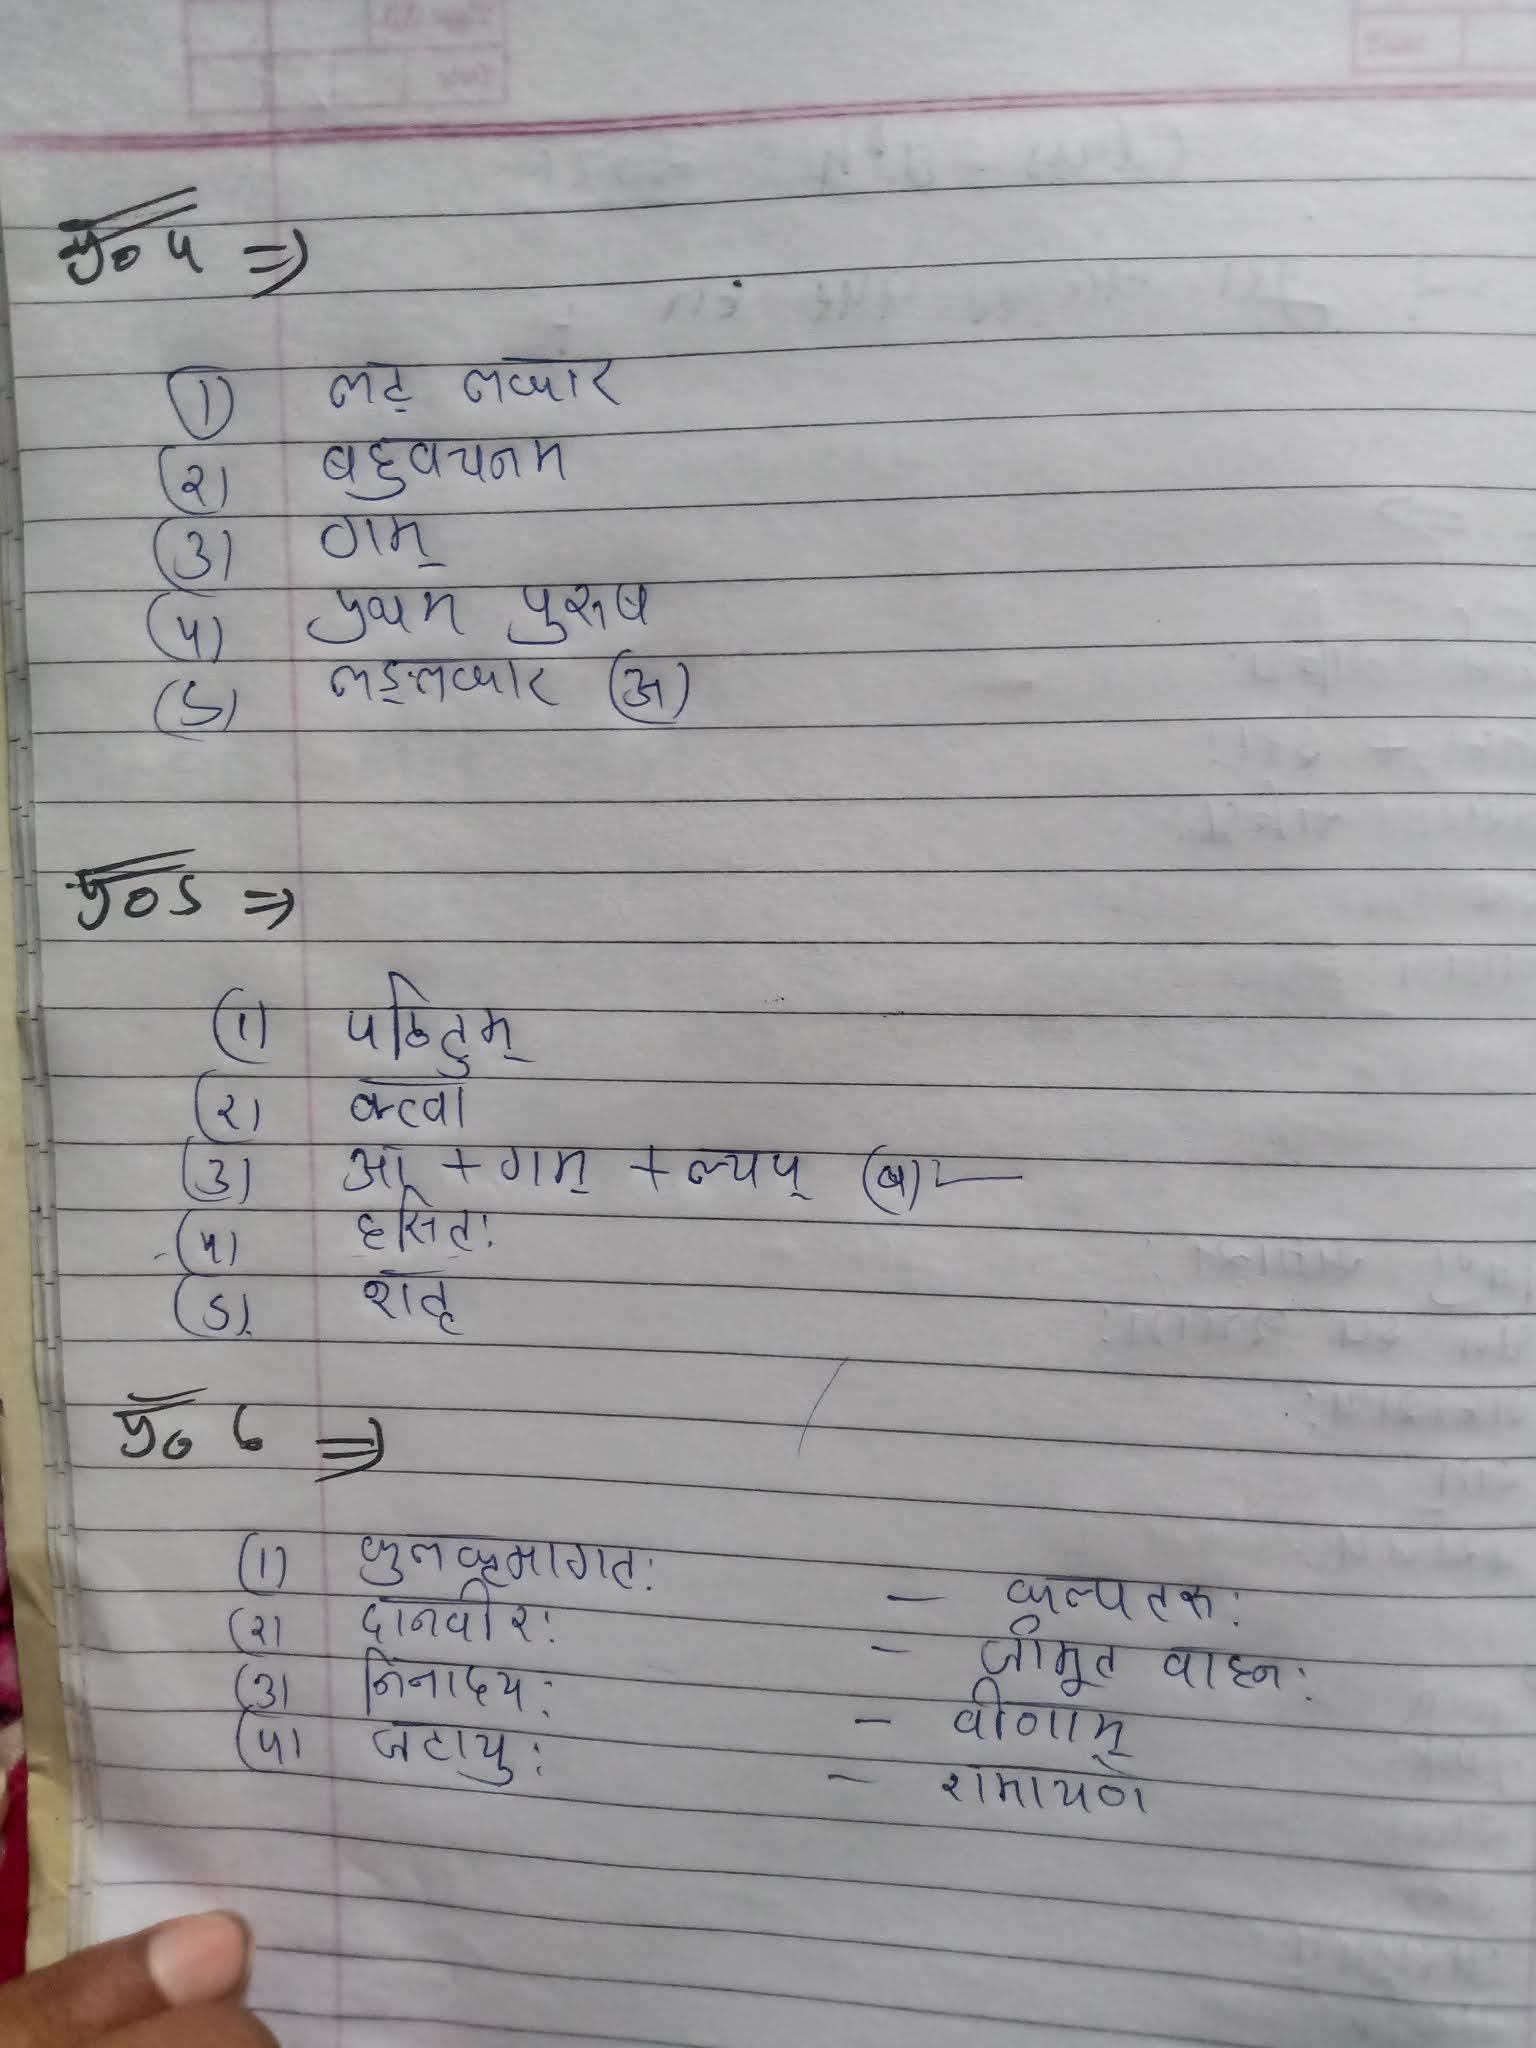 प्र० ५ ⇒
(1) लट् लकार
(२) बहुवचनम
(3) गम्
(५) प्रथम पुरुष
(5) लङ्लकार (अ)
प्र० 5 ⇒
(1) पठितुम्
(२) क्त्वा
(3) आ + गम् + ल्यप् (ब)
(५) हसितः
(5) शतृ
प्र० 6 ⇒
(1) कुलक्रमागतः - कल्पतरुः
(२) दानवीरः - जीमूत वाहनः
(3) निनादयः - वीणाम्
(५) जटायुः - रामायणे